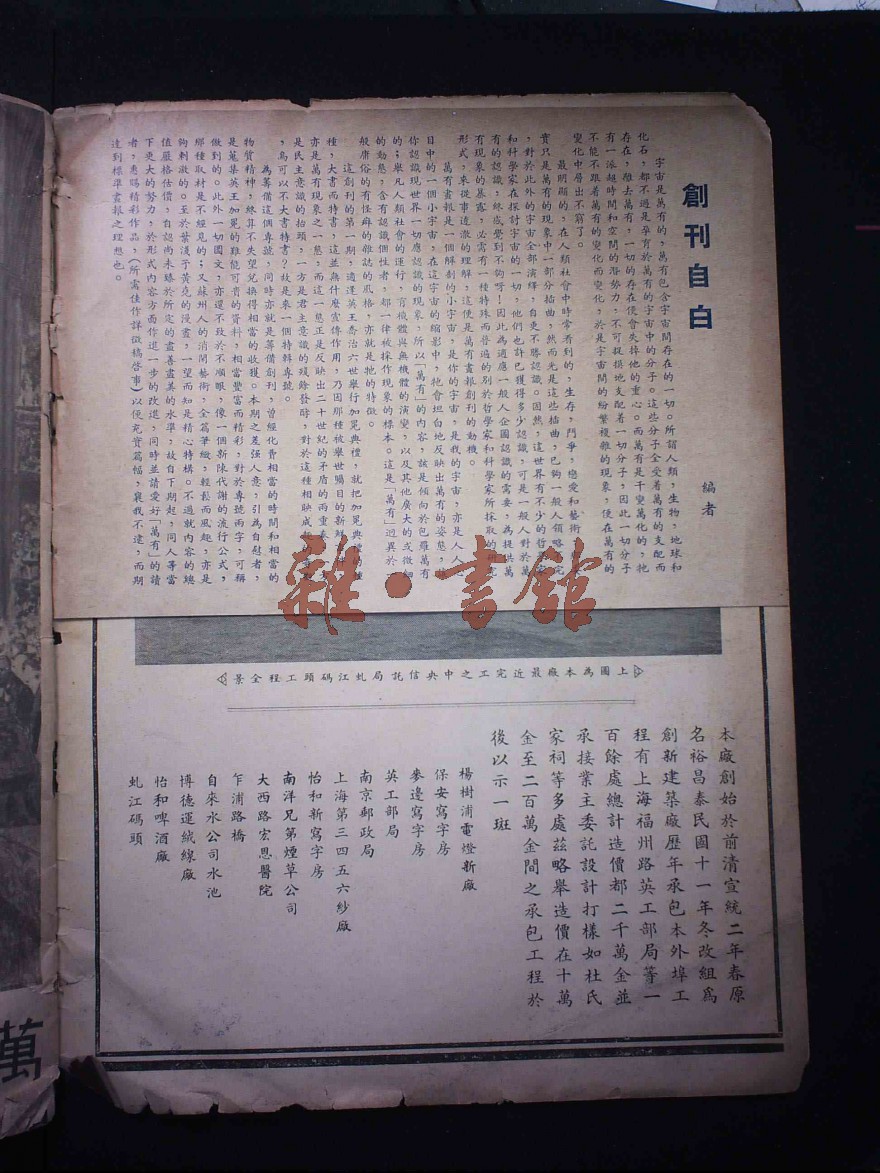 創刊自白
編者
宇宙是萬有的，萬有包含宇宙間存在的一切。所謂人類，生物，地球和
化石，都不過是孕育於萬有的宇宙中的分子。這些分子全受着萬有的支配而
存在，離去萬有，一切的存在便會失掉他的重心。而萬有是千變萬化的，牠
有一派超時間和空間的潛勢力，不可捉摸地支配着一切分子，因此一切分子
不能不跟着萬有的變化而變化，於是宇宙間的紛繁複雜的現象，便在萬有的
變化中層出不窮了。
最明顯的，在人類社會中時常看到的，生存，鬥爭，戀愛和藝術
實只是萬有的現象中一部分插曲，然而光是這些插曲，已夠一般人領略
，對於此外的宇宙全部演繹，自更不勝認識。固然，這世界有不少的哲
和科學家在探討宇宙的一切，他們也許已獲得多少認識，可是一般人對於萬
有的認識，終感覺到不夠呀！因此為適應一般人企圖認識的需要，為提供萬
有現象的暴露，必需有一種特殊而普遍的別於哲學家和科學家所採取的
形式，來從事達澈的理解，這便是萬有畫報創刊的動機。
萬有畫報是一個解剖的小宇宙，是你的宇宙，是我的宇宙，亦是人人
目中的一個小宇宙，在這宇宙的縮影中，牠會坦白地反映出萬有的姿態，
你認識現世界一切應認識的現象，所以「萬有」的內容，該是傾向於包羅萬有
的；舉凡人類社會的運行，有機體與無機體的演變，以及其他廣大的或微細
的動態，含有認識個性者，都一律被採作現象的標本。這是「萬有」迥異於
般庸俗的有怪癖的雜誌的風格，亦就是牠的特徵。
這創刊的第一期，適逢英王喬治六世舉行加冕典禮，就把加冕典禮的種
種，大書而特書，這並無什麼宣傳作用，乃因那種被舉世矚目的新鮮
亦是萬有現象之一態，而這一態正是反映出二十世紀的矛盾的兩重奏
是民主意識的抬頭，一方是君主意識的殘餘發酵，對於這種相映成
，烏可以不大書特書？故是來一個特輯專號。
為籌備這個專號，同時亦就是籌備創刊，曾經化費相當的時間和相當的
物質精神，終算不失望兒換得相當的收獲。本期之差强人意，引為自慰者，
是蒐集英王加冕的難能可貴的資料，相當豐富而精彩，對於專號兩字，可稱
做到的。此外一切圖文，亦還不致於不順眼，像一個新陳代謝的流行公式，
那種取材是不經見的；又蘇州人的消閒藝術，全篇筆緻，輕鬆而風趣，亦是
夠刺激的。至於葉淺予黃堯的漫畫，一望而知是精心特構。不過就內容的總
值嚴格估價，自認尚未臻於所定的盡善盡美的水準，故自下期起，同人等當
下更大的努力，於形式內容方面作進一步的改進，同時並請愛好「萬有」的讀
者，惠賜精彩作品，（所需佳作詳徵稿啓事）以便充實篇幅，襄我不逮，而期
達到標準畫報之理想也。
雜·書館
上圖為本廠最近完工之中央信託局虬江碼頭工程全景
本廠創始於前清宣統二年春原
名裕昌泰民國十一年冬改組為
創新建築廠歷年承包本外埠工
程有上海福州路英工部局等一
百餘處總計造價都二千萬金並
承接業主委託設計打樣如杜氏
家祠等多處茲略舉造價在十萬
金至二百萬金間之承包工程於
後以示一斑
楊樹浦電燈新廠
保安寫字房
麥邊寫字房
英工部局
南京郵政局
上海第三四五六紗廠
怡和新寫字房
南洋兄第煙草公司
大西路宏恩醫院
乍浦路橋
自來水公司水池
博德運絨線廠
怡和啤酒廠
虬江碼頭
萬